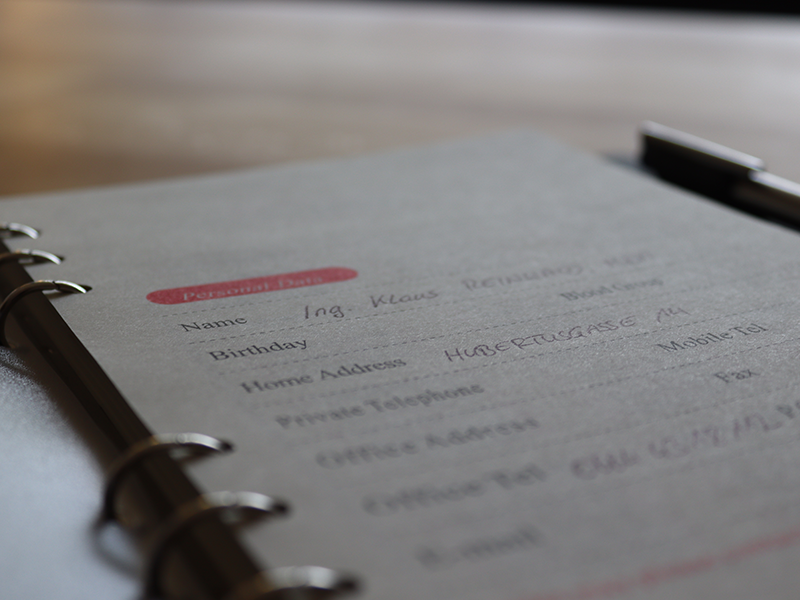 Personal Data
Name Ing. Klaus
Blood Group
Birthday
Home Address HUBERTUSGASSE 14
Private Telephone Mobile Tel
Office Address Fax
Office Tel
E-mail